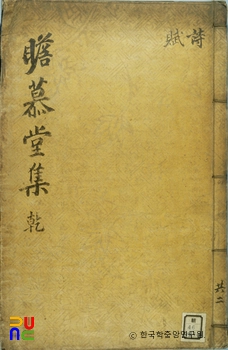 詩
賦
瞻慕堂集 乾
共二
PUNC
© 한국학중앙연구원